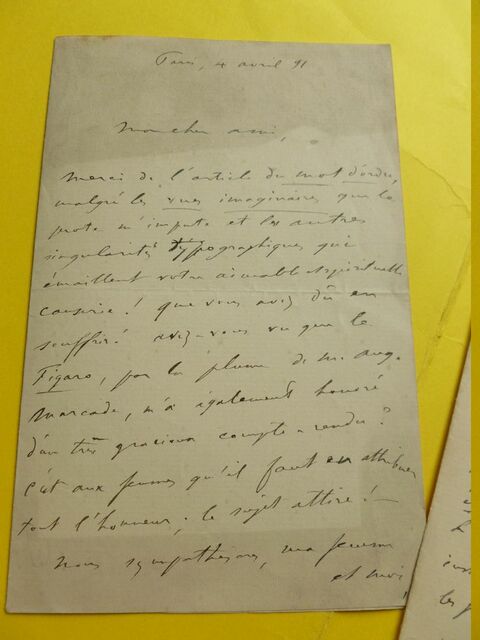 Paris, 4 avril 91
Mon cher ami,
Merci de l'article du mot d'ordre,
malgré les vues imaginaires que le
prote m'impute et les autres
singularités typographiques qui
émaillent votre aimable & spirituelle
causerie! que vous avez dû en
souffrir! avez-vous vu que le
Figaro, par la plume de M. Aug.
Marcade, m'a également honoré
d'un très gracieux compte-rendu?
c'est aux femmes qu'il faut en attribuer
tout l'honneur; le sujet attire!
Nous sympathisons, ma femme
et moi,